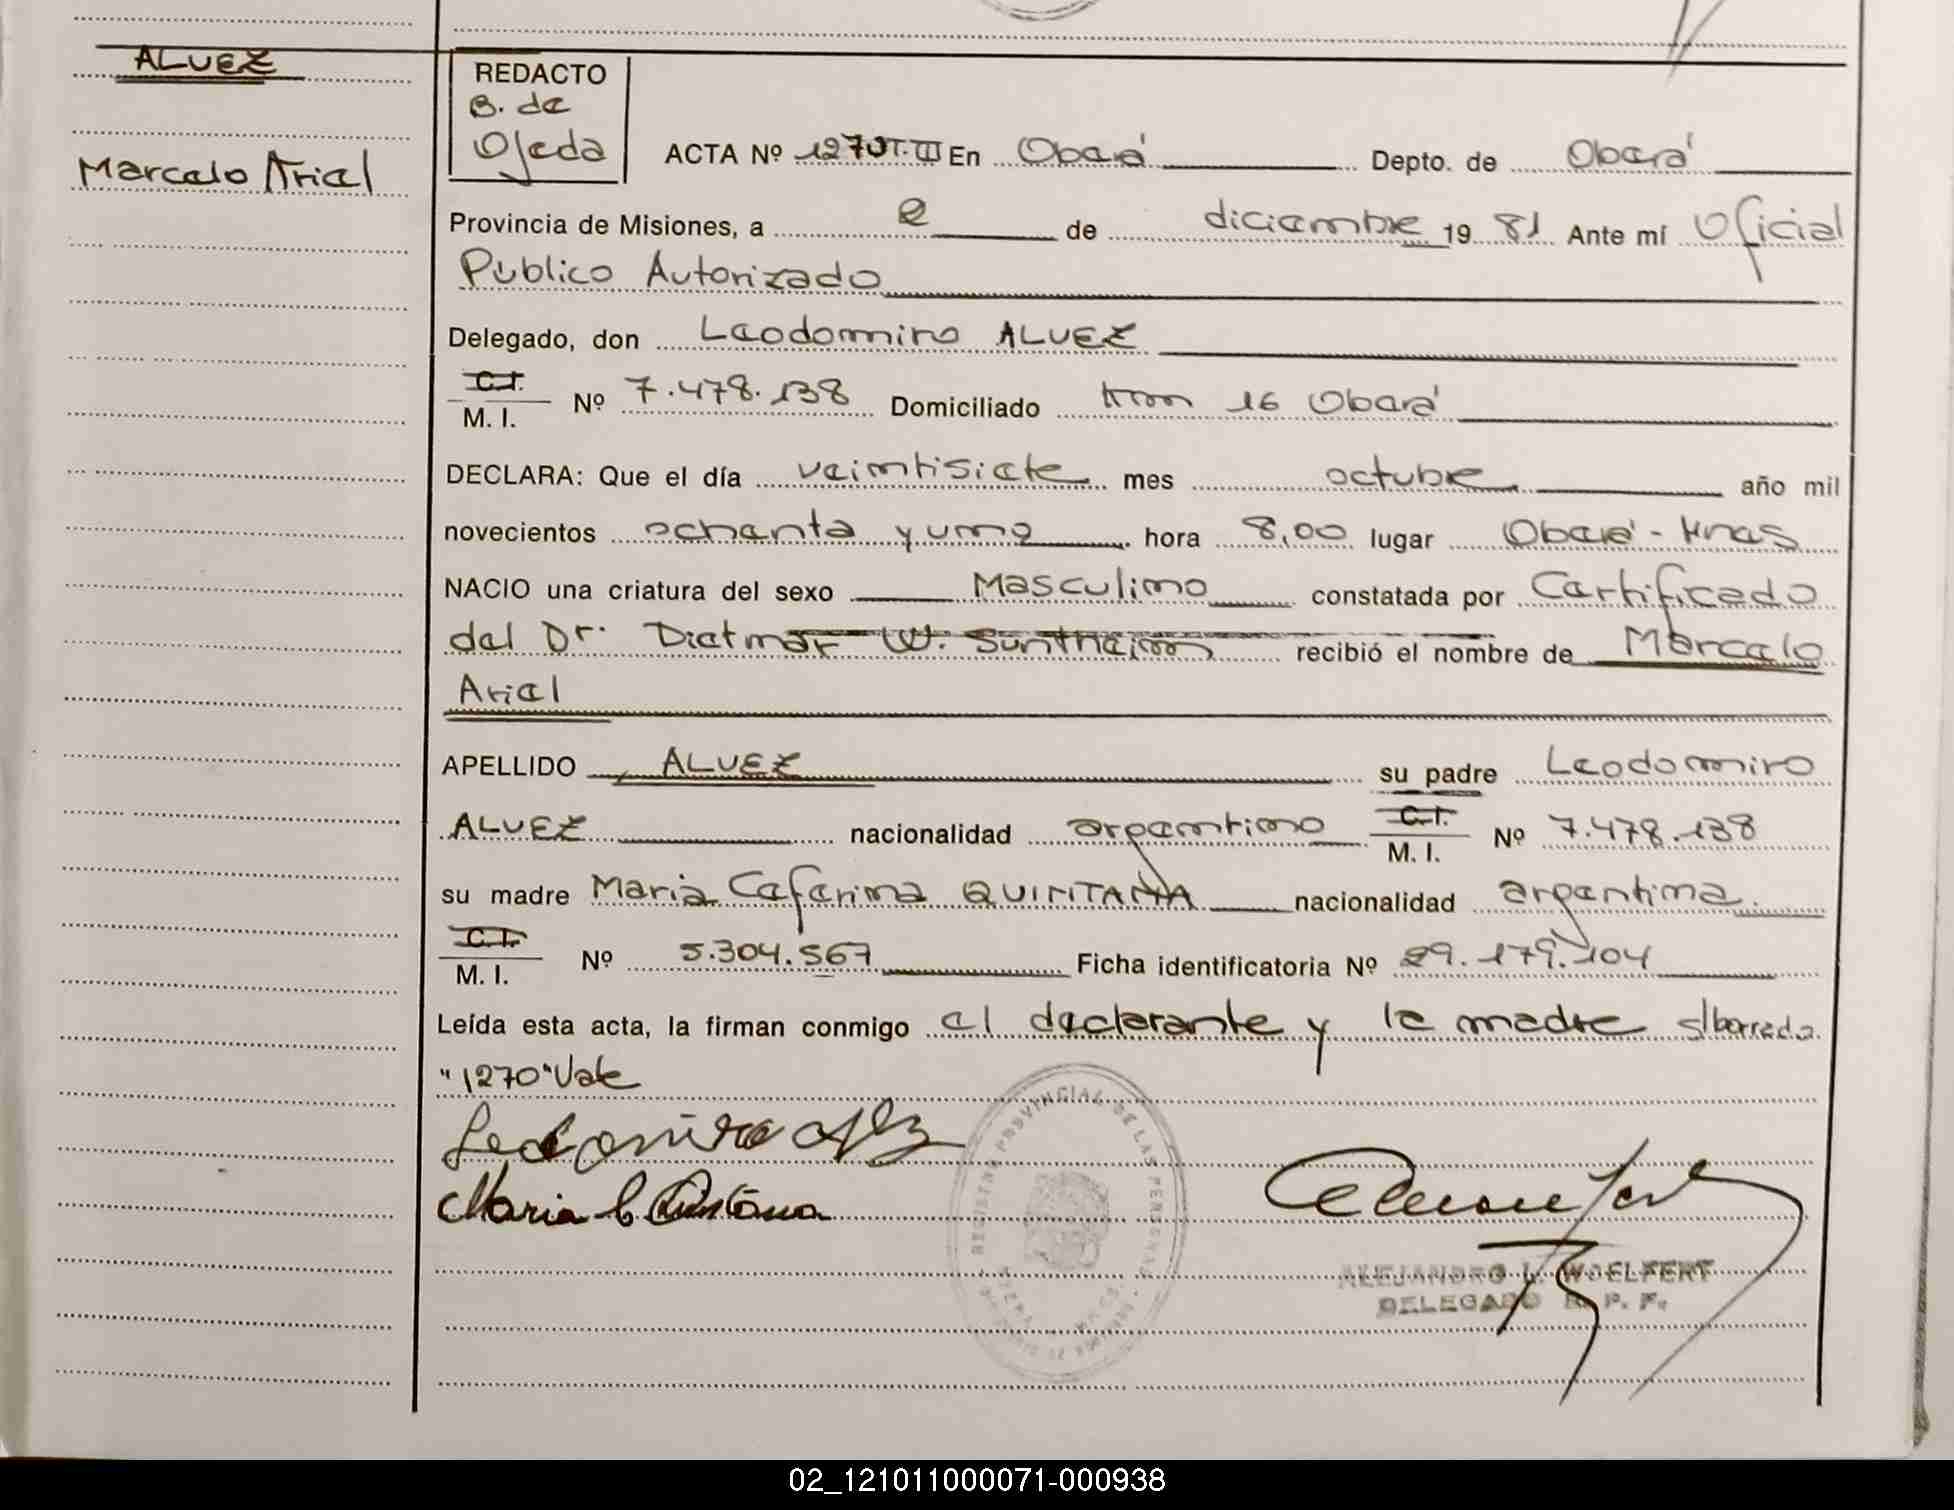 ALVEZ
Marcelo Ariel
REDACTO
B. de
Ojeda
ACTA Nº 1270 T. III En Oberá Depto. de Oberá
Provincia de Misiones, a 2 de diciembre 19 81 Ante mí Oficial
Publico Autorizado
Delegado, don Leodomiro ALVEZ
C.I.
M. I. Nº 7.478.138 Domiciliado km 16 Oberá
DECLARA: Que el día veintisiete mes octubre año mil
novecientos ochenta y uno hora 8,00 lugar Oberá - Mnes
NACIO una criatura del sexo Masculino constatada por Certificado
del Dr. Dietmar W. Suntheim recibió el nombre de Marcelo
Ariel
APELLIDO ALVEZ su padre Leodomiro
ALVEZ nacionalidad argentino C.I. M. I. Nº 7.478.138
su madre Maria Ceferina QUINTANA nacionalidad argentina.
C.I.
M. I. Nº 5.304.567 Ficha identificatoria Nº 29.179.104
Leída esta acta, la firman conmigo el declarante y la madre s/borrado
"1270" Vale
Leodomiro Alvez
Maria C Quintana
REGISTRO PROVINCIAL DE LAS PERSONAS
ALEJANDRO L. WOELFERT
DELEGADO R. P. P.
02_121011000071-000938